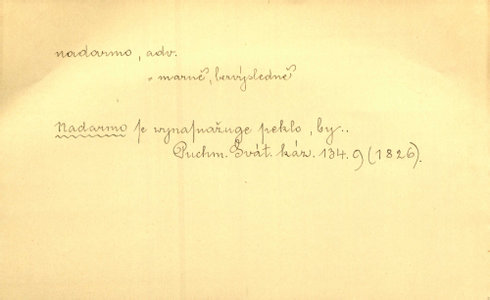 nadarmo, adv.
„marně, bezvýsledně“
Nadarmo se wynasnažuge peklo, by..
Puchm. Svát. káz. 134. 9 (1826).